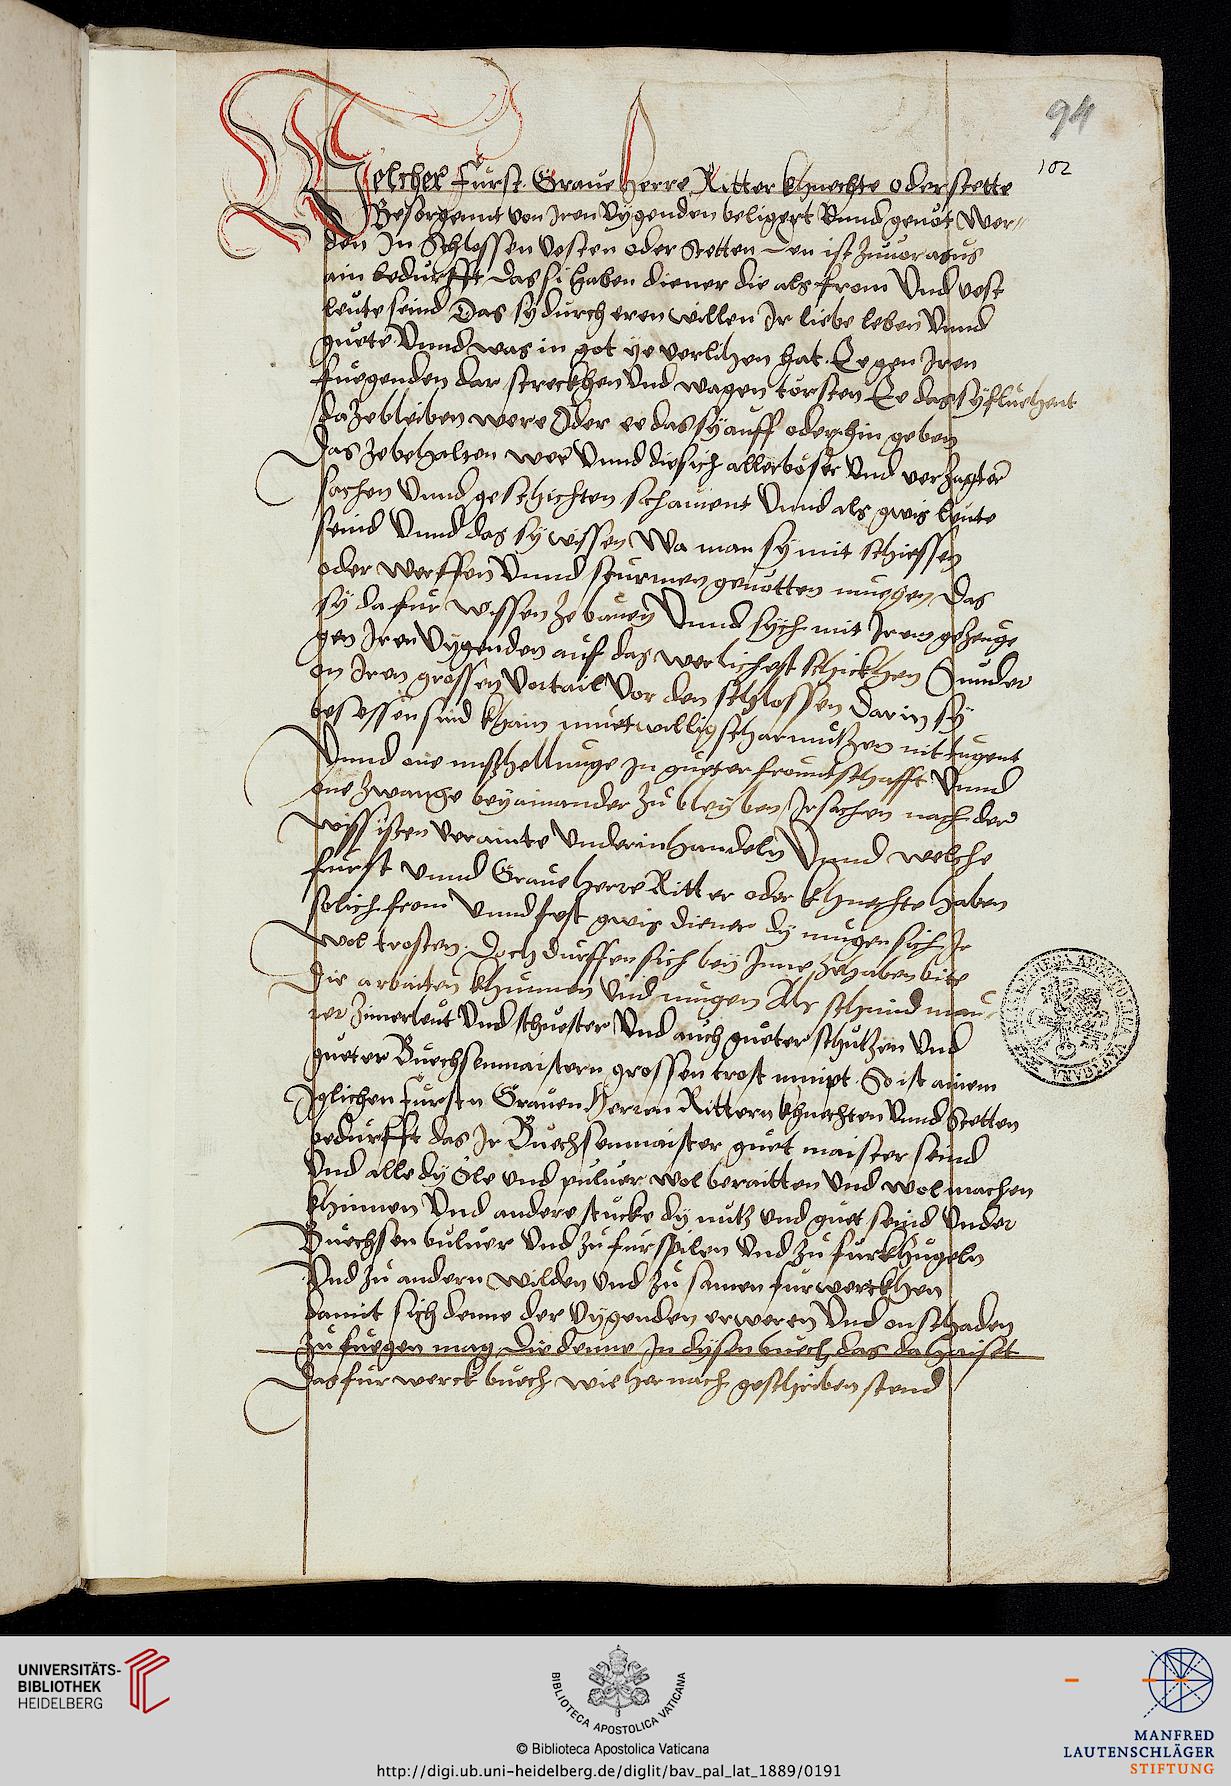 94
102
Welcher Furst Graue herre Ritter khnechte oder stette
Besorgennt von Iren Vygenden beligert Vnnd genöt Wer〃
den In Schlossen Vesten oder Stetten den ist zuuor auss
ain bedurfft das si haben diener die als from Vnd vest
leute seind Das sy durch eren willen Ir liebe leben Vnnd
guete Vnnd was in got ye verlihen hat Ee gen Iren
fuegenden dar streckhen Vnd wagen törsten Ee das sy fluehent
da ze bleiben were Oder ee das sy auff oder hin geben
Das ze behalten wer Vnnd die sich aller böser Vnd verzagter
sachen Vnnd geschichten schament Vnnd als gwis leute
seind Vnnd das sy wissen Wa man sy mit schiessen
oder werffen Vnnd sturmen genötten muegen Das
sy dafur wissen ze bauen Vnnd sych mit Irem gezeuge
gen Iren Vygenden auf das werlichest schickhen Sunder
on Iren grossen Vortail Vor den schlossen darin sy
besessen sind khain muetwillig scharmutzen nit tugent
Vnnd one misshellunge In gueter frountschafft Vnnd
one zwange bey ainander zu bleyben Ir sachen nach der
wissisten verainte Vnderinhandeln Vnnd welche
furst vnnd Graue herre Ritter oder khnechte haben
solich from Vnnd fest gwis diener dy mugen sich Ir
wol trosten Doch durffen sich bey Inne ze haben
die arbaiten khunnen Vnd mugen Als schmid mau〃
rer Zimerleut Vnd schuester Vnd auch gueter schutzen Vnd
gueter Buechsenmaistern grossen trost nimpt So ist ainem
Iglichen fursten Grauen Herren Rittern khnechten Vnnd Stetten
bedurfft das Ir Buechsenmaister guet maister seind
Vnd alle dy Öle vnd puluer wol beraitten Vnd wol machen
khinnen Vnd andere stucke dy nutz Vnd guet seind Vnder
Buechsen buluer Vnd zu fur spilen Vnd zu furkhugeln
Vnd zu andern wilden Vnd zu samen furwerckhen
damit sich denne der Vygenden erweren Vnd on schaden
zu fuegen mag Die denne In dysen buech das da haisst
Das fur werck buech wie hernach geschriben stend
UNIVERSITÄTS-
BIBLIOTHEK
HEIDELBERG
BIBLIOTECA APOSTOLICA VATICANA
© Biblioteca Apostolica Vaticana
http://digi.ub.uni-heidelberg.de/diglit/bav_pal_lat_1889/0191
MANFRED
LAUTENSCHLÄGER
STIFTUNG